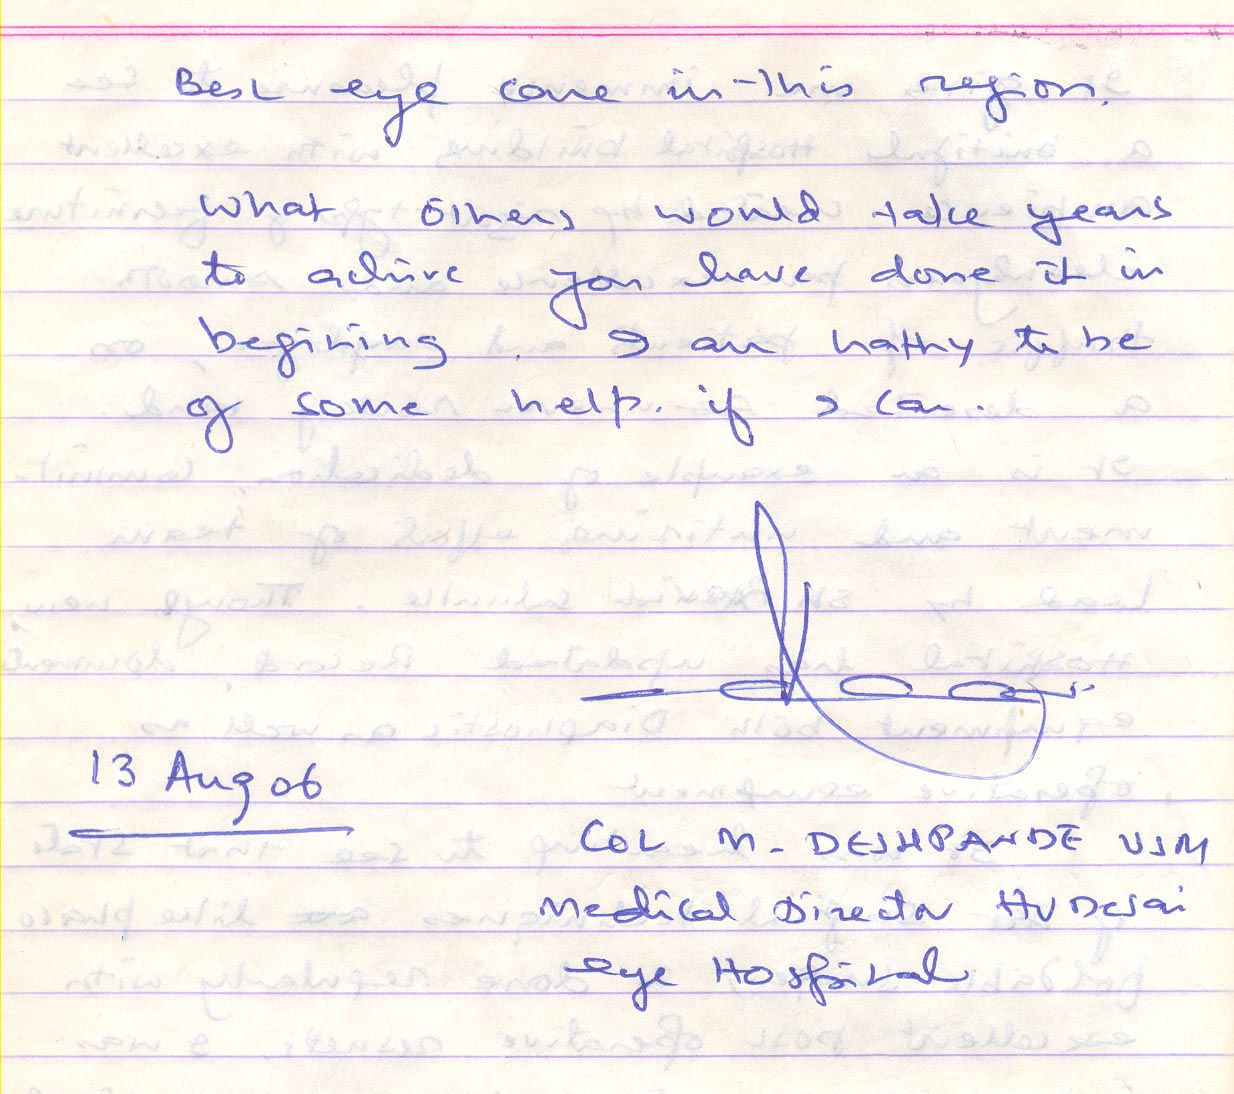 Best eye care in this region.
What others would take years
to achive you have done it in
begining. I am happy to be
of some help. if I can.
13 Aug 06
COL M. DESHPANDE VSM
Medical Director HV Desai
eye Hospital